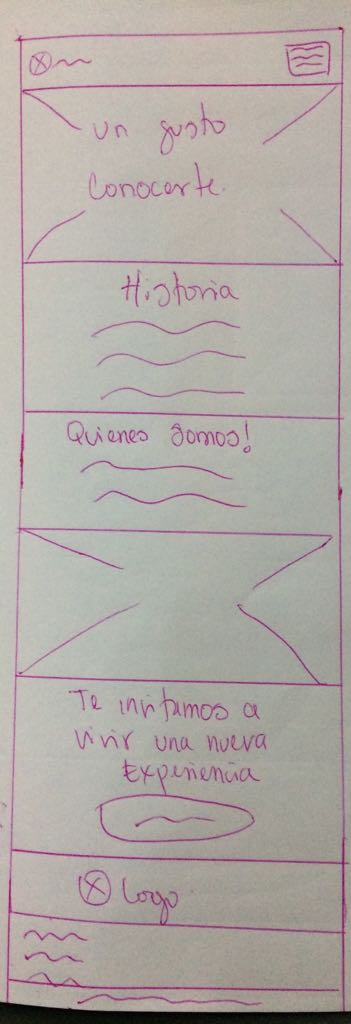 un gusto
conocerte.
Historia
Quienes somos!
Te invitamos a
vivir una nueva
Experiencia
Logo